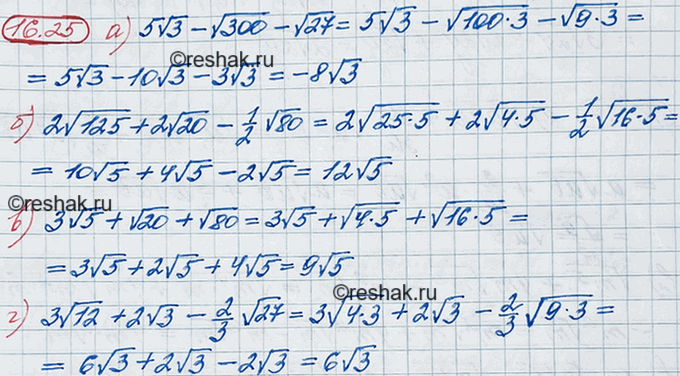 16.25 а) 5√3 − √300 − √27 = 5√3 − √100·3 − √9·3 =
©reshak.ru
= 5√3 − 10√3 − 3√3 = −8√3
б) 2√125 + 2√20 − 1/2 √80 = 2√25·5 + 2√4·5 − 1/2 √16·5 =
= 10√5 + 4√5 − 2√5 = 12√5
©reshak.ru
в) 3√5 + √20 + √80 = 3√5 + √4·5 + √16·5 =
= 3√5 + 2√5 + 4√5 = 9√5
©reshak.ru
г) 3√12 + 2√3 − 2/3 √27 = 3√4·3 + 2√3 − 2/3 √9·3 =
= 6√3 + 2√3 − 2√3 = 6√3